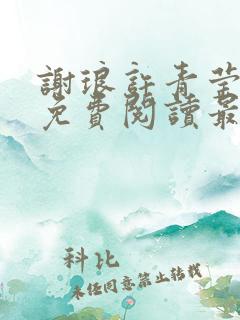 謝琅許青莹
免費閱讀最
科比
未經同意禁止轉載